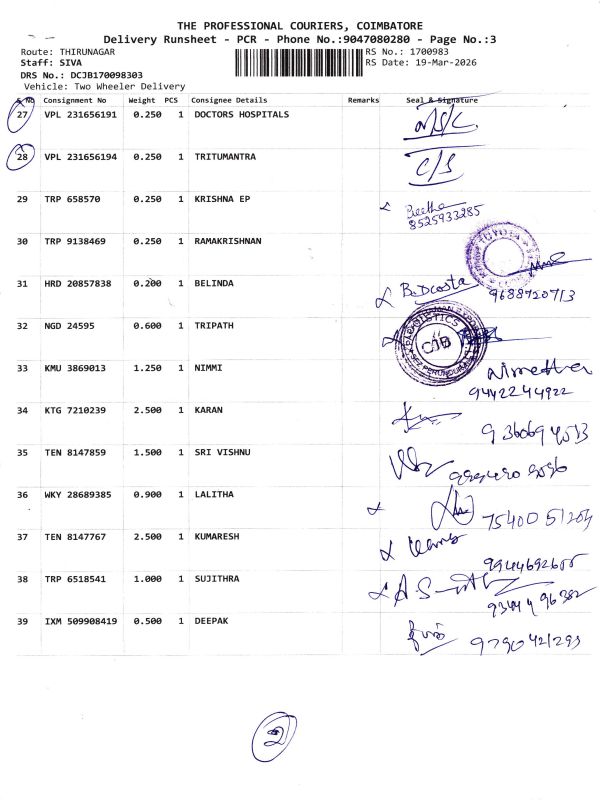 THE PROFESSIONAL COURIERS, COIMBATORE
Delivery Runsheet - PCR - Phone No.:9047080280 - Page No.:3
Route: THIRUNAGAR RS No.: 1700983
Staff: SIVA RS Date: 19-Mar-2026
DRS No.: DCJB170098303
Vehicle: Two Wheeler Delivery
S No Consignment No Weight PCS Consignee Details Remarks Seal & Signature
27 VPL 231656191 0.250 1 DOCTORS HOSPITALS
28 VPL 231656194 0.250 1 TRITUMANTRA C/S
29 TRP 658570 0.250 1 KRISHNA EP
8525933285
30 TRP 9138469 0.250 1 RAMAKRISHNAN
31 HRD 20857838 0.200 1 BELINDA B. Dcosta
9688720713
32 NGD 24595 0.600 1 TRIPATH CJB
33 KMU 3869013 1.250 1 NIMMI
9442244922
34 KTG 7210239 2.500 1 KARAN
35 TEN 8147859 1.500 1 SRI VISHNU
36 WKY 28689385 0.900 1 LALITHA
75400 51204
37 TEN 8147767 2.500 1 KUMARESH
38 TRP 6518541 1.000 1 SUJITHRA
39 IXM 509908419 0.500 1 DEEPAK
9790421293
2